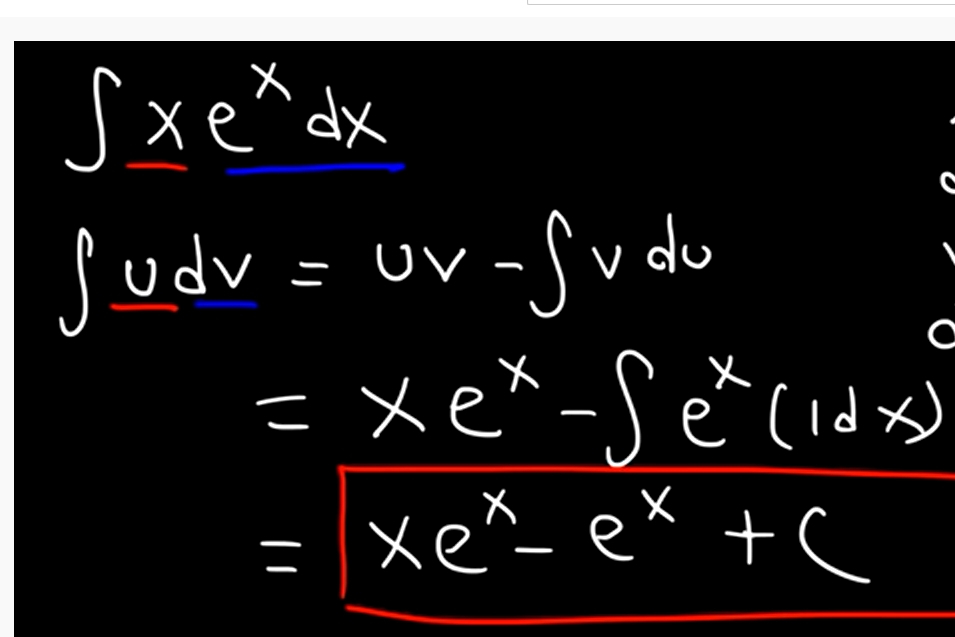 ∫ x eˣ dx
∫ u dv = uv - ∫ v du
= x eˣ - ∫ eˣ (1 dx)
= x eˣ - eˣ + C